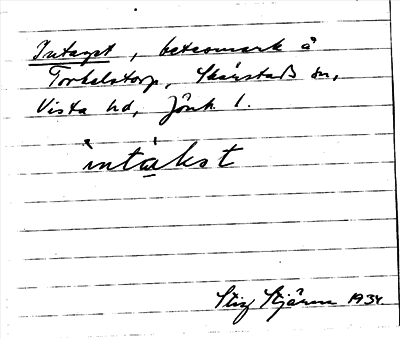 Intaget, betesmark å
Torkelstorp, Skärstads sn,
Vista hd, Jönk. l.
ìntákst
Stig Stjärn 1934.